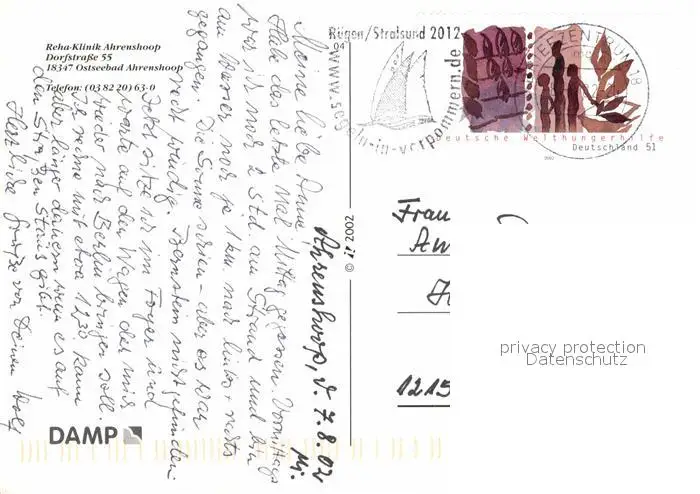 Reha-Klinik Ahrenshoop
Dorfstraße 55
18347 Ostseebad Ahrenshoop
Telefon: (03 82 20) 63-0
Rügen/Stralsund 2012
www.segeln-in-vorpommern.de
04
BRIEFZENTRUM 18
Deutsche Welthungerhilfe
Deutschland 51
2002
Ahrenshoop, d. 7.8.02
Mi.
Meine liebe Anne,
Habe das letzte Mal Mittag gegessen. Vormittags
war ich noch 2 Std. am Strand und bin
am Wasser noch je 1 km nach links + rechts
gegangen. Die Sonne schien - aber es war
recht windig. Bernstein nicht gefunden.
Jetzt sitze ich im Foyer und
warte auf den Wagen der mich
wieder nach Berlin bringen soll.
Ich rechne mit etwa 1230. kann
aber länger dauern wenn es auf
den Straßen Staus gibt.
Herzliche Grüße von Deinem Wolf
© 2002
Frau
An
1215
DAMP
privacy protection
Datenschutz